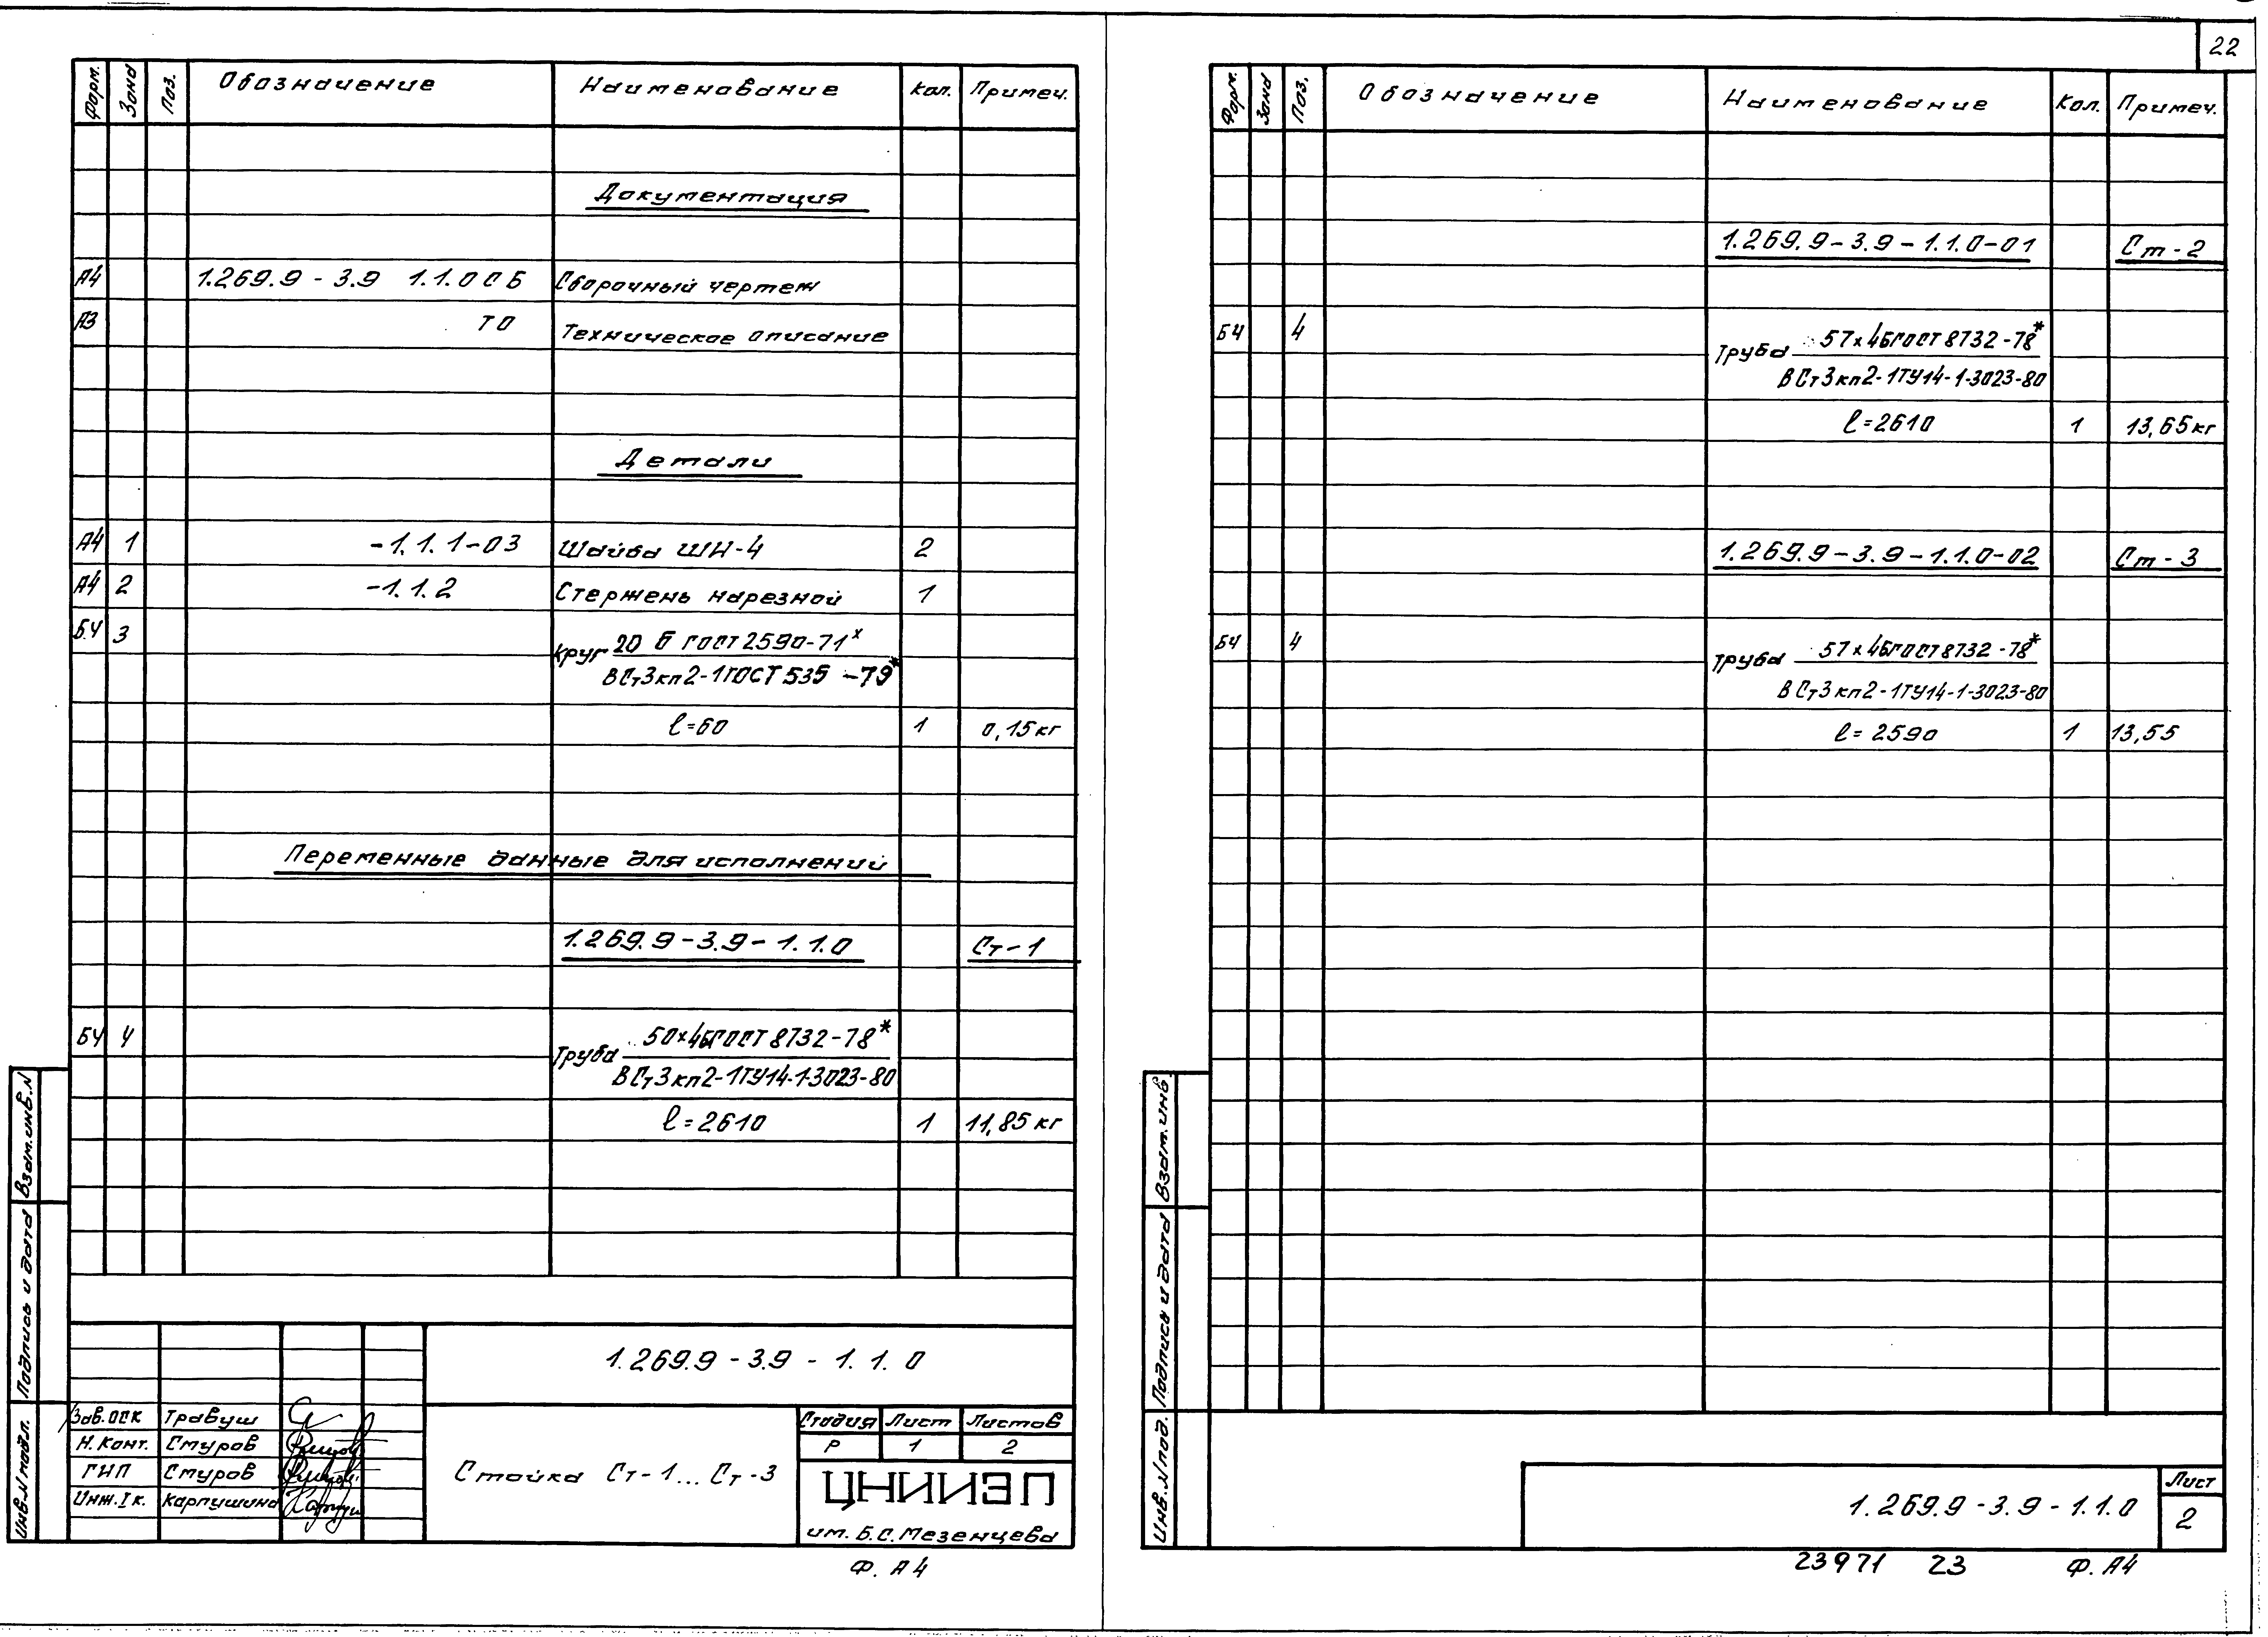 Форм. Зона Поз. Обозначение Наименование Кол. Примеч.
Документация
А4 1.269.9-3.9 1.1.0СБ Сборочный чертеж
А3 ТО Техническое описание
Детали
А4 1 -1.1.1-03 Шайба ШН-4 2
А4 2 -1.1.2 Стержень нарезной 1
БЧ 3 круг 20 Б ГОСТ 2590-71*
ВСт3кп2-1ГОСТ 535-79*
ℓ=60 1 0,15кг
Переменные данные для исполнений
1.269.9-3.9-1.1.0 Ст-1
БЧ 4 Труба 50×4БГОСТ 8732-78*
ВСт3кп2-1ТУ14-1-3023-80
ℓ=2610 1 11,85кг
Взам.инв.N
Подпись и дата
Инв.N подл.
1.269.9-3.9-1.1.0
Зав.ОСК Травуш
Н.конт. Стуров
ГИП Стуров
Инж.Iк. Карпушина
Стойка Ст-1...Ст-3
Стадия Лист Листов
Р 1 2
ЦНИИЭП
им. Б.С.Мезенцева
Ф. А4
22
Форм. Зона Поз. Обозначение Наименование Кол. Примеч.
1.269.9-3.9-1.1.0-01 Ст-2
БЧ 4 Труба 57×4БГОСТ 8732-78*
ВСт3кп2-1ТУ14-1-3023-80
ℓ=2610 1 13,65кг
1.269.9-3.9-1.1.0-02 Ст-3
БЧ 4 Труба 57×4БГОСТ 8732-78*
ВСт3кп2-1ТУ14-1-3023-80
ℓ=2590 1 13,55
Взам.инв.
Подпись и дата
Инв.N под.
1.269.9-3.9-1.1.0
Лист
2
23971 23 Ф. А4